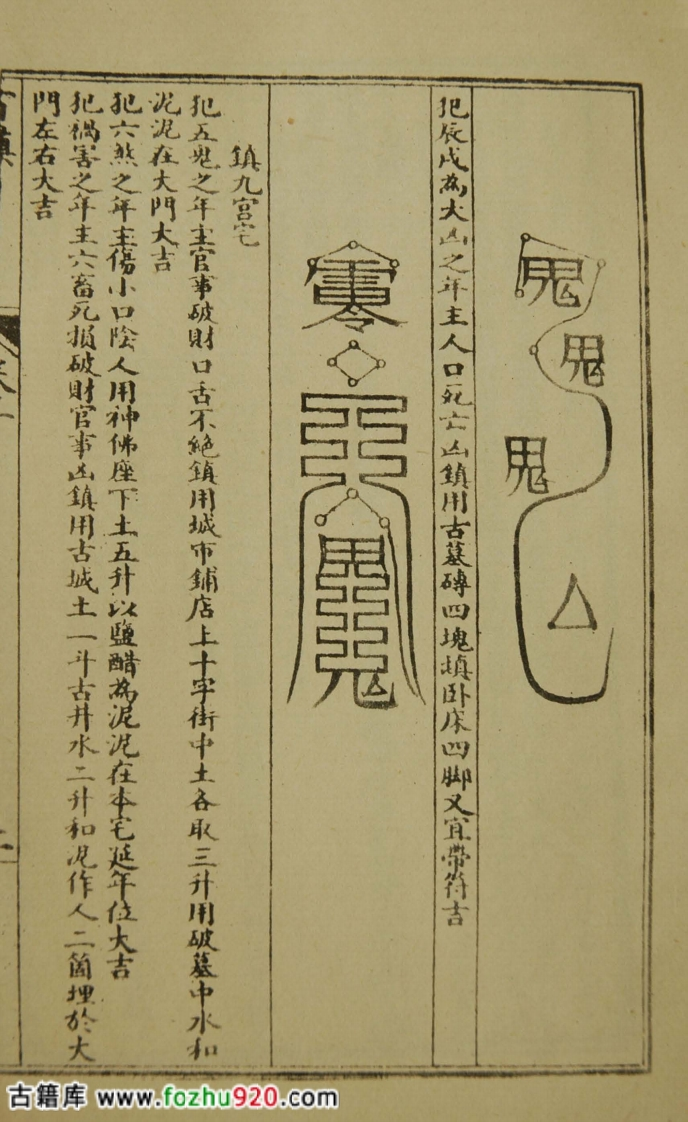 鬼
鬼
鬼
犯辰戌為大凶之年主人口死亡凶鎮用古墓磚四塊填卧床四脚又宜帶符吉
鎮九宮宅
犯五鬼之年主官事破財口舌不絶鎮用城市鋪店上十字街中土各取三升用破墓中水和
泥泥在大門大吉
犯六煞之年主傷小口陰人用神佛座下土五升以鹽醋為泥泥在本宅延年位大吉
犯禍害之年主六畜死損破財官事凶鎮用古城土一斗古井水二升和泥作人二箇埋於大
門左右大吉
古籍库 www.fozhu920.com